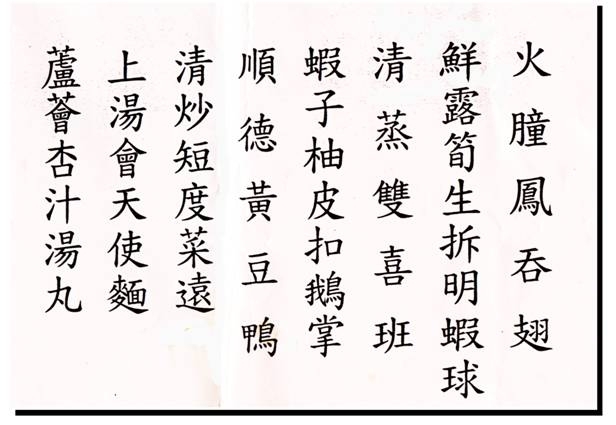 火朣鳳吞翅
鮮露筍生拆明蝦球
清蒸雙喜班
蝦子柚皮扣鵝掌
順德黃豆鴨
清炒短度菜遠
上湯會天使麵
蘆薈杏汁湯丸